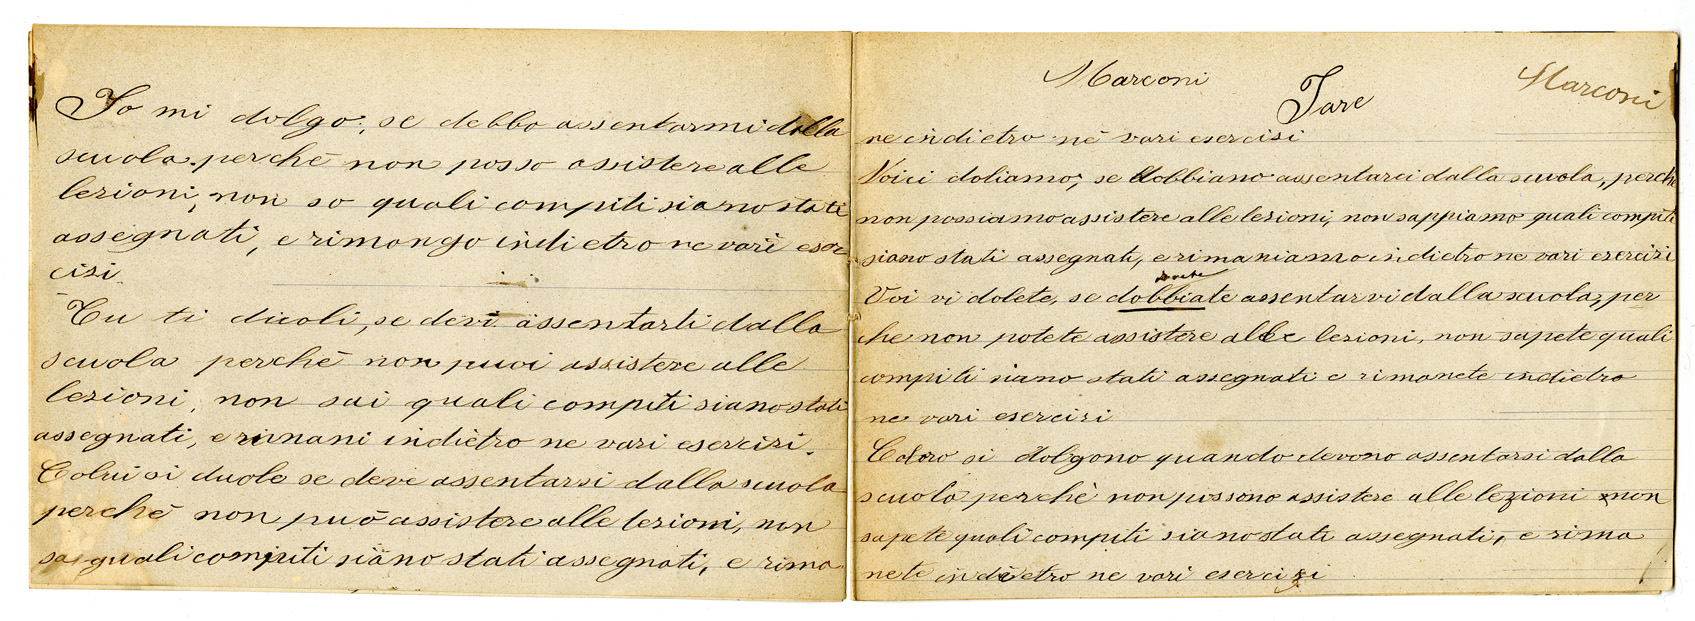 Io mi dolgo, se debbo assentarmi dalla
scuola perchè non posso assistere alle
lezioni, non so quali compiti siano stati
assegnati, e rimango indietro ne vari eser
cizi
Tu ti duoli, se devi assentarti dalla
scuola perchè non puoi assistere alle
lezioni, non sai quali compiti siano stati
assegnati, e rimani indietro ne vari esercizi.
Colui si duole se deve assentarsi dalla scuola
perchè non può assistere alle lezioni, non
sa quali compiti siano stati assegnati, e rima
Marconi
Marconi
ne indietro nè vari esercisi
Noi ci doliamo, se dobbiano assentarci dalla scuola, perche
non possiamo assistere alle lezioni, non sappiamo quali compiti
siano stati assegnati, e rimaniamo indietro ne vari esercizi
Voi vi dolete, se dobbiate assentarvi dalla scuola, per
che non potete assistere alle lezioni, non sapete quali
compiti siano stati assegnati e rimanete indietro
ne vari esercizi
Coloro si dolgono quando devono assentarsi dalla
scuola, perchè non possono assistere alle lezioni non
sapete quali compiti siano stati assegnati, e rima
nete indietro ne vari esercizi